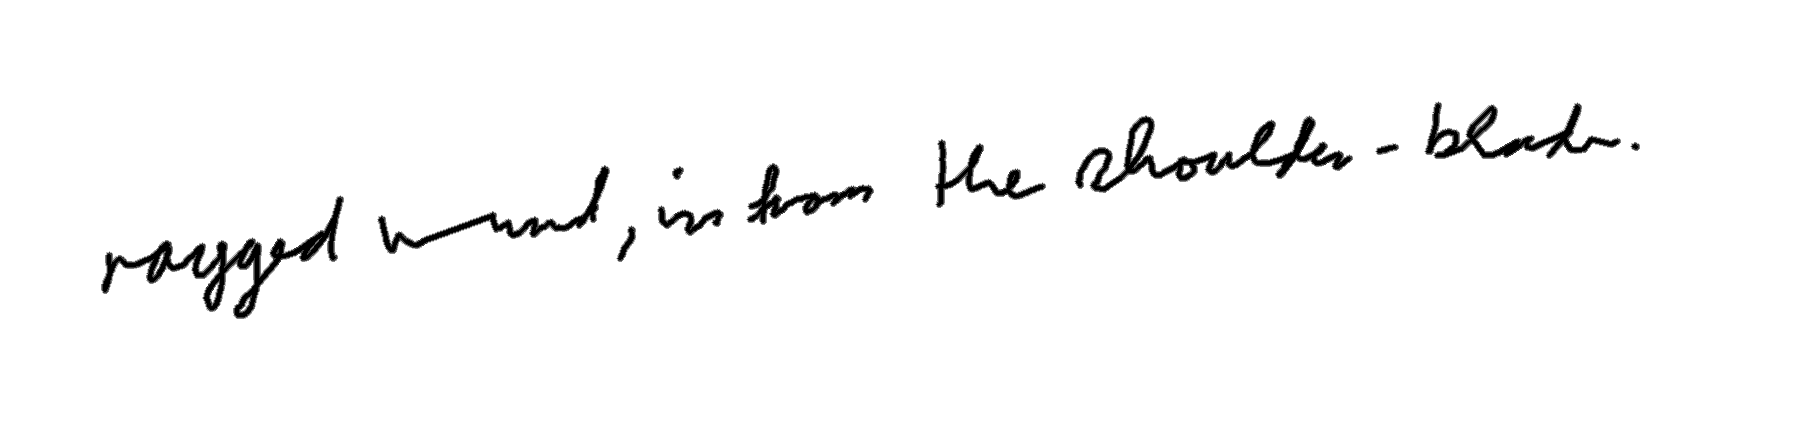 ragged wound, in from the shoulder-blade.